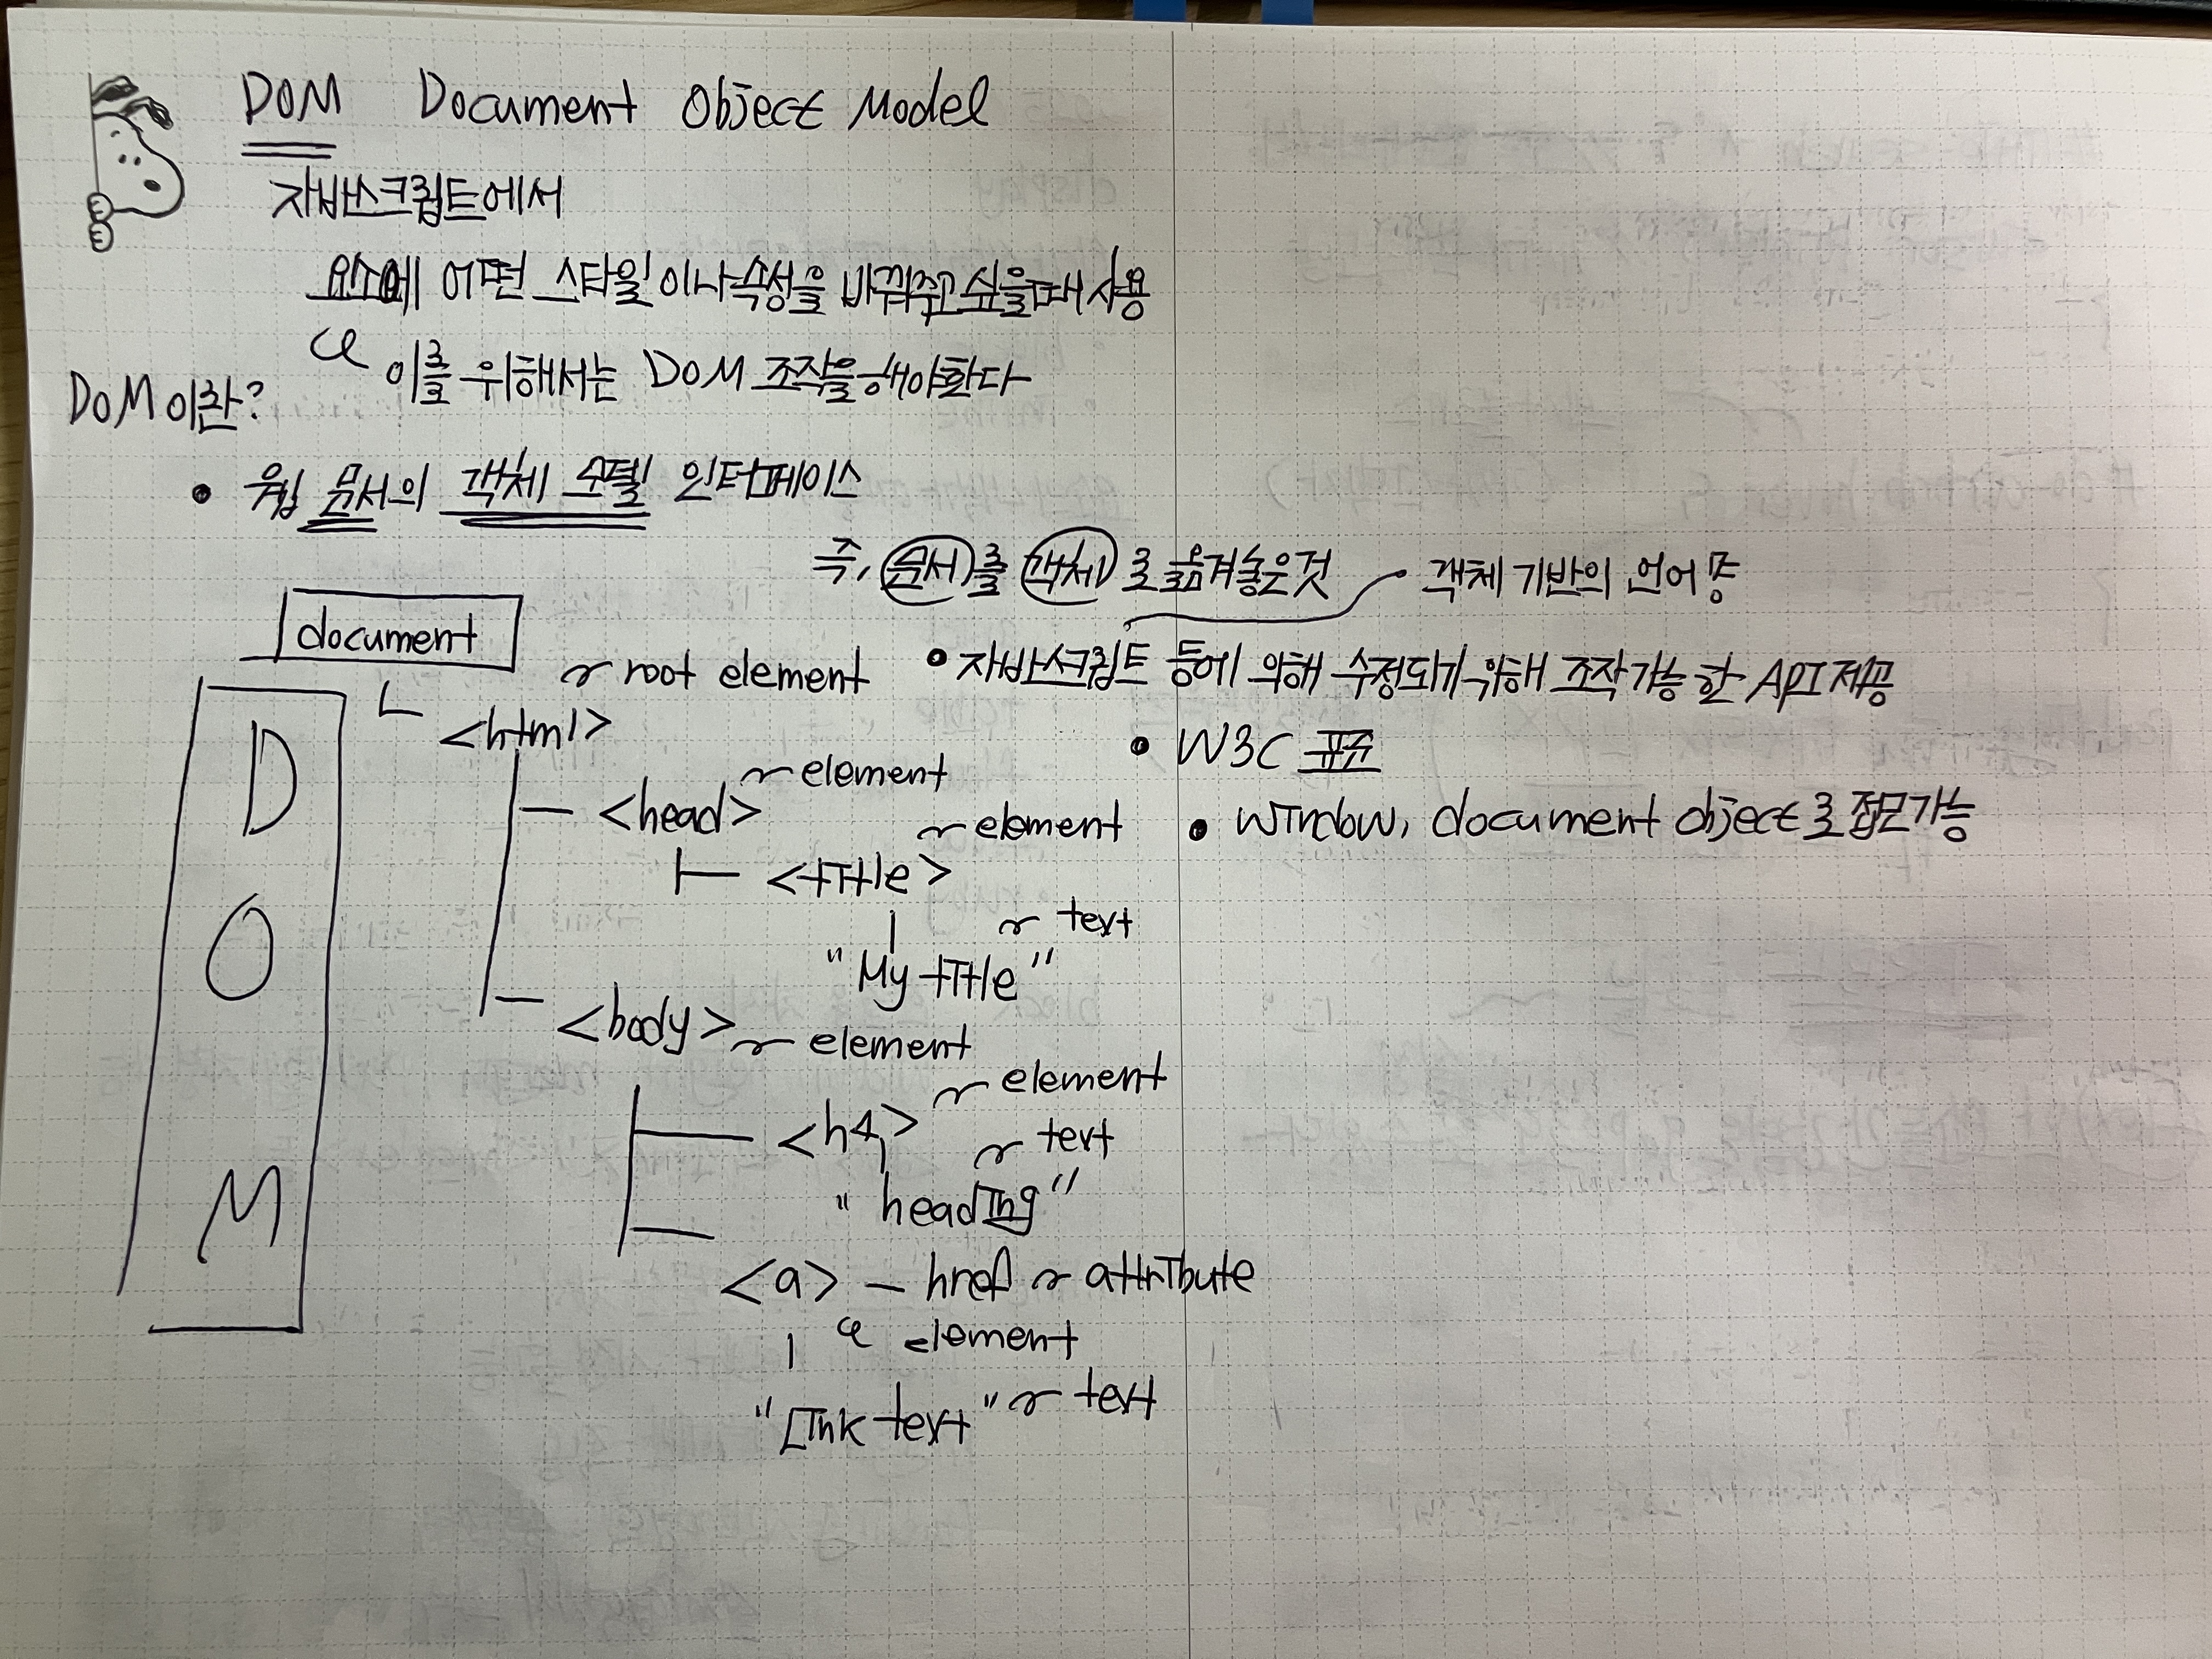 DOM Document Object Model
자바스크립트에서
요소에 어떤 스타일이나 속성을 바꿔주고 싶을때 사용
이를 위해서는 DOM 조작을 해야한다
DOM이란?
• 웹 문서의 객체 모델 인터페이스
즉, 문서를 객체로 옮겨놓은것
객체 기반의 언어 중
• 자바스크립트 등에 의해 수정되기 위해 조작가능한 API 제공
• W3C 표준
• window, document object로 접근가능
document
DOM
<html> root element
<head> element
<title> element
"My title" text
<body> element
<h1> element
"heading" text
<a> - href attribute
element
"Link text" text